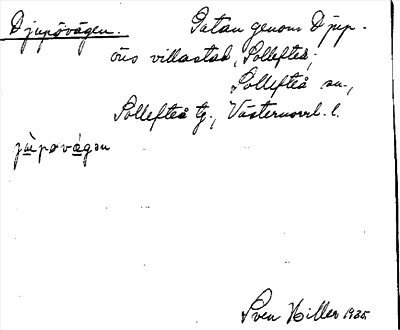 Djupövägen. Gatan genom Djup-
öns villastad, Sollefteå;
Sollefteå sn.,
Sollefteå tg., Västernorrl. l.
jùpøvágən
Sven Hiller 1935